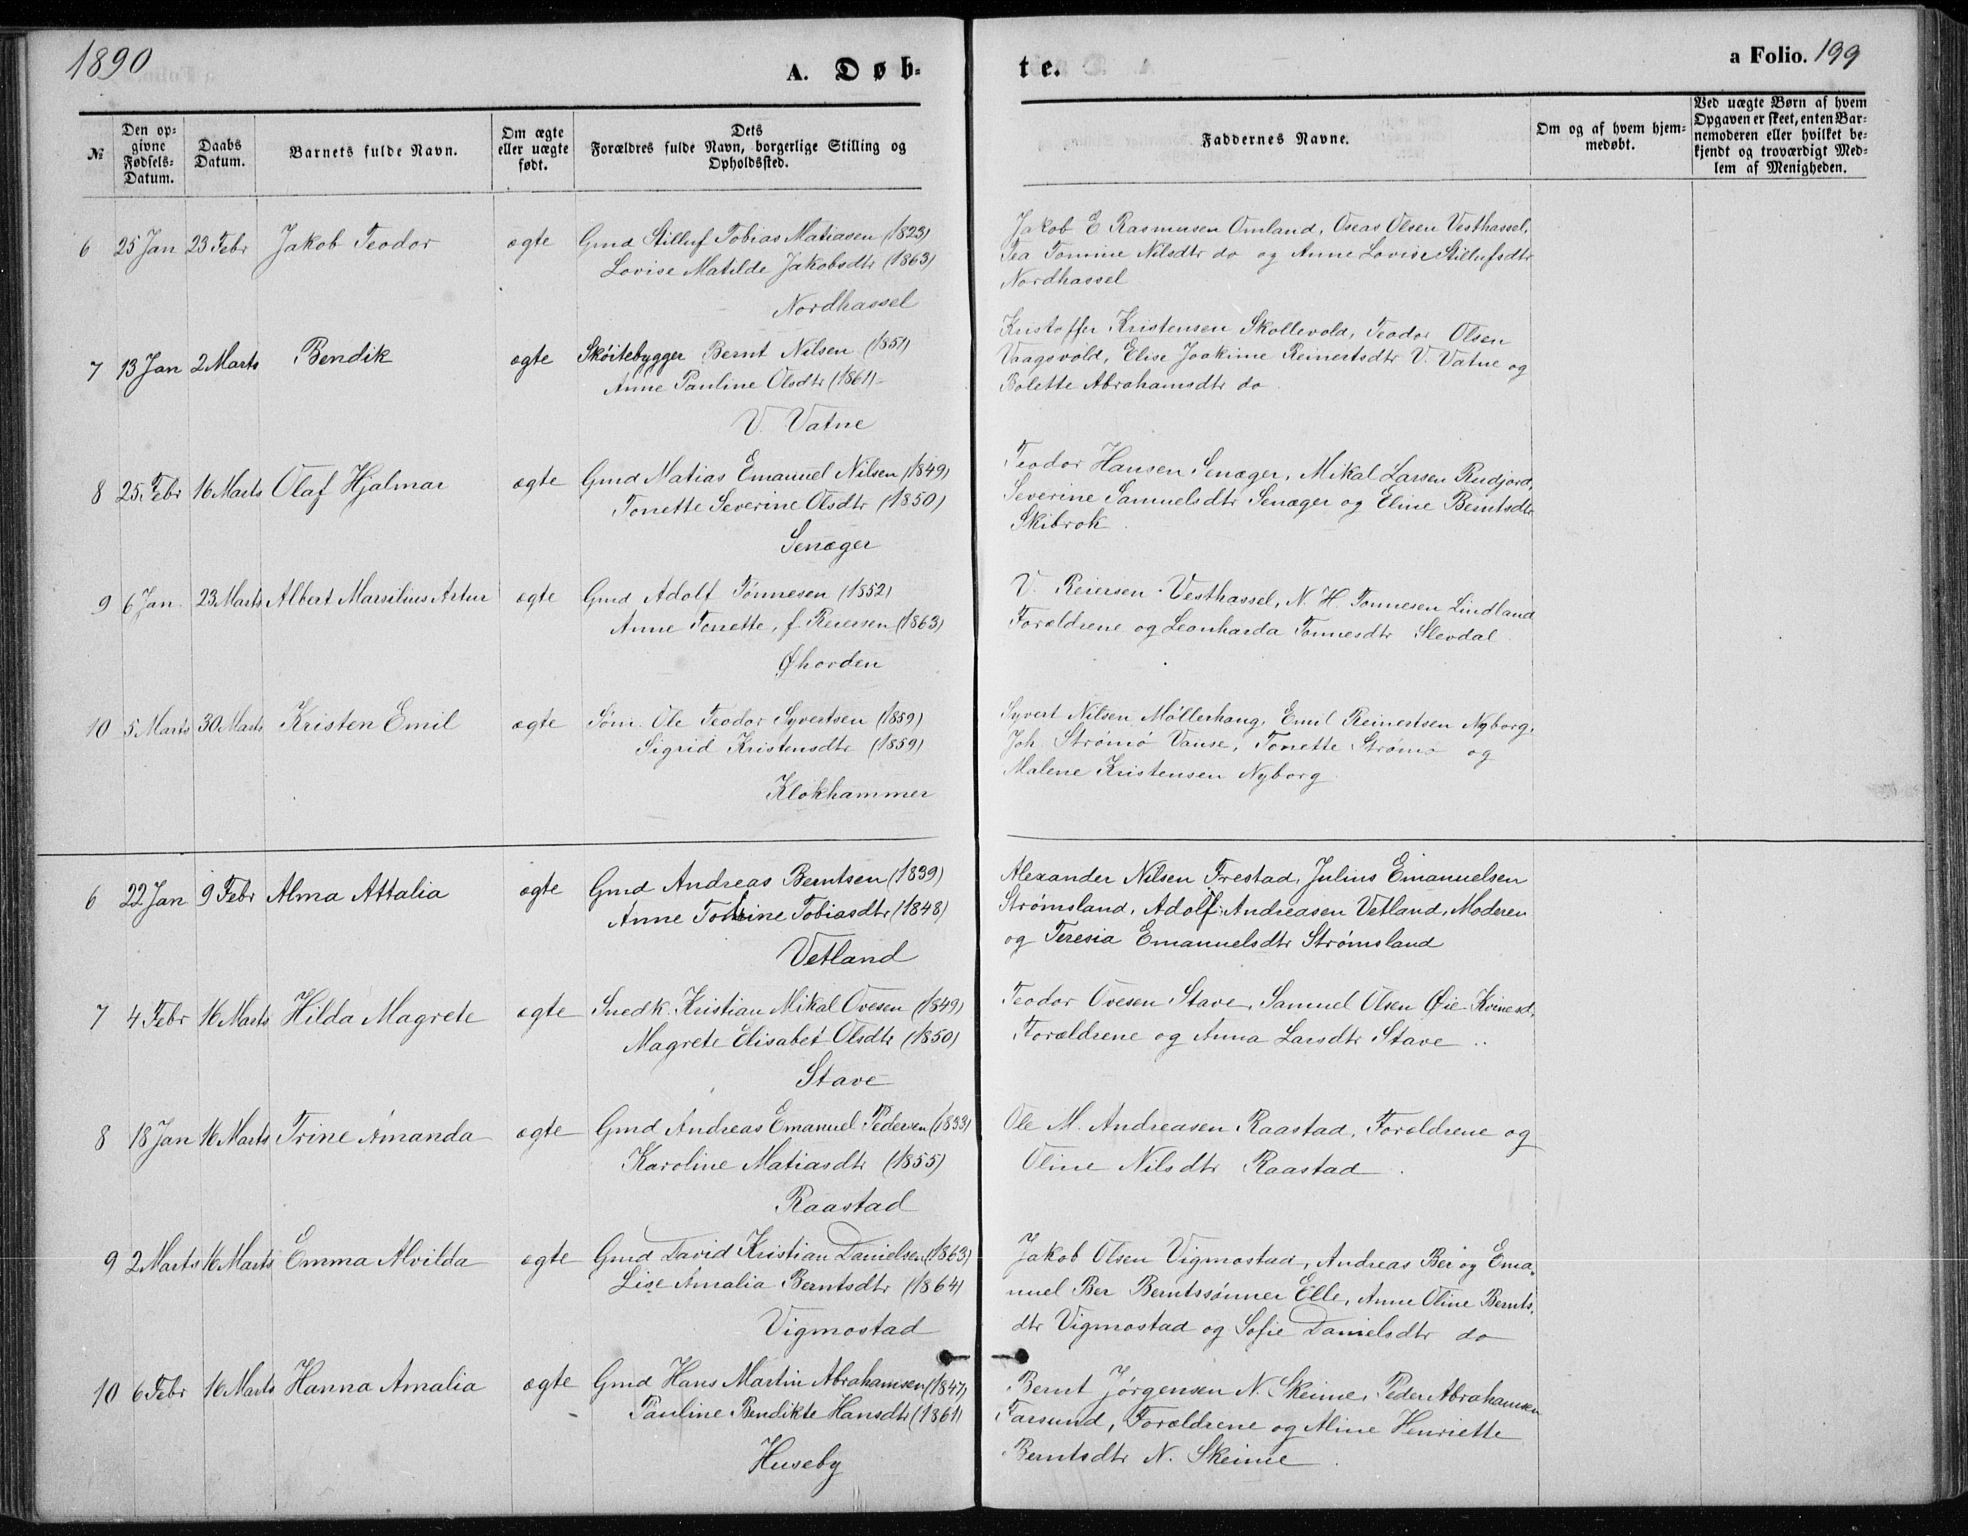 1890
A. Døb-
te.
a Folio. 199
№
Den op-
givne
Fødsels-
Datum.
Daabs
Datum.
Barnets fulde Navn.
Om ægte
eller uægte
født.
Dets
Forældres fulde Navn, borgerlige Stilling og
Opholdssted.
Faddernes Navne.
Om og af hvem hjem-
medøbt.
Ved uægte Børn af hvem
Opgaven er skeet, enten Bar-
nemoderen eller hvilket be-
kjendt og troværdigt Med-
lem af Menigheden.
6 25 Jan 23 Febr Jakob Teodor ægte Gmd Stilluf Tobias Matiasen (1823)
Lovise Matilde Jakobsdtr (1863)
Nordhassel
Jakob E Rasmusen Omland, Oseas Olsen Vesthassel,
Tea Tomine Nilsdtr do og Anne Lovise Stillufsdtr
Nordhassel
7 13 Jan 2 Marts Bendik ægte Skøitebygger Bernt Nilsen (1851)
Anne Pauline Olsdtr (1861)
V. Vatne
Kristoffer Kristensen Skollevold, Teodor Olsen
Vaagsvold, Elise Joakime Reinertsdtr V. Vatne og
Bolette Abrahamsdtr do
8 25. Febr 16 Marts Olaf Hjalmar ægte Gmd Matias Emanuel Nilsen (1849)
Tonette Severine Olsdtr (1850)
Senæger
Teodor Hansen Senæger, Mikal Larsen Rudjord,
Severine Samuelsdtr Senæger og Eline Berntsdtr
Skibrok.
9 6 Jan. 23 Marts Albert Marsilius Artur ægte Gmd Adolf Tønnesen (1852)
Anne Tonette, f. Reiersen (1863)
Øhorden
V. Reiersen Vesthassel, N. H. Tønnesen Lindland
Forældrene og Leonharda Tønnesdtr Slevdal.
10 5 Marts 30 Marts Kristen Emil ægte Søm. Ole Teodor Syvertsen (1859)
Sigrid Kristensdtr (1859)
Klokhammer
Syvert Nilsen Møllerhaug, Emil Reinertsen Nyborg,
Joh. Strømø Vanse, Tonette Strømø og
Malene Kristensen Nyborg
6 22 Jan 9 Febr Alma Attalia ægte Gmd Andreas Berntsen (1839)
Anne Tomine Tobiasdtr (1848)
Vetland
Alexander Nilsen Frestad, Julius Emanuelsen
Strømsland, Adolf Andreasen Vetland, Moderen
og Teresia Emanuelsdtr Strømsland
7 4 Febr 16 Marts Hilda Magrete ægte Snedk. Kristian Mikal Ovesen (1849)
Magrete Elisabet Olsdtr (1850)
Stave
Teodor Ovesen Stave, Samuel Olsen Øie Kvinesd,
Forældrene og Anna Larsdtr Stave
8 18 Jan 16 Marts Trine Amanda ægte Gmd Andreas Emanuel Pedersen (1853)
Karoline Matiasdtr (1855)
Raastad
Ole M. Andreasen Raastad, Forældrene og
Oline Nilsdtr Raastad.
9 2 Marts 16 Marts Emma Alvilda ægte Gmd David Kristian Danielsen (1863)
Lise Amalia Berntsdtr (1864)
Vigmostad
Jakob Olsen Vigmostad, Andreas Ber og Ema-
nuel Ber Berntssønner Elle, Anne Oline Bernts-
dtr Vigmostad og Sofie Danielsdtr do
10 6 Febr 16 Marts Hanna Amalia ægte Gmd Hans Martin Abrahamsen (1847)
Pauline Bendikte Hansdtr (1861)
Huseby
Bernt Jørgensen N. Skeime, Peder Abrahamsen
Farsund, Forældrene og Aline Henriette
Berntsdtr N. Skeime.